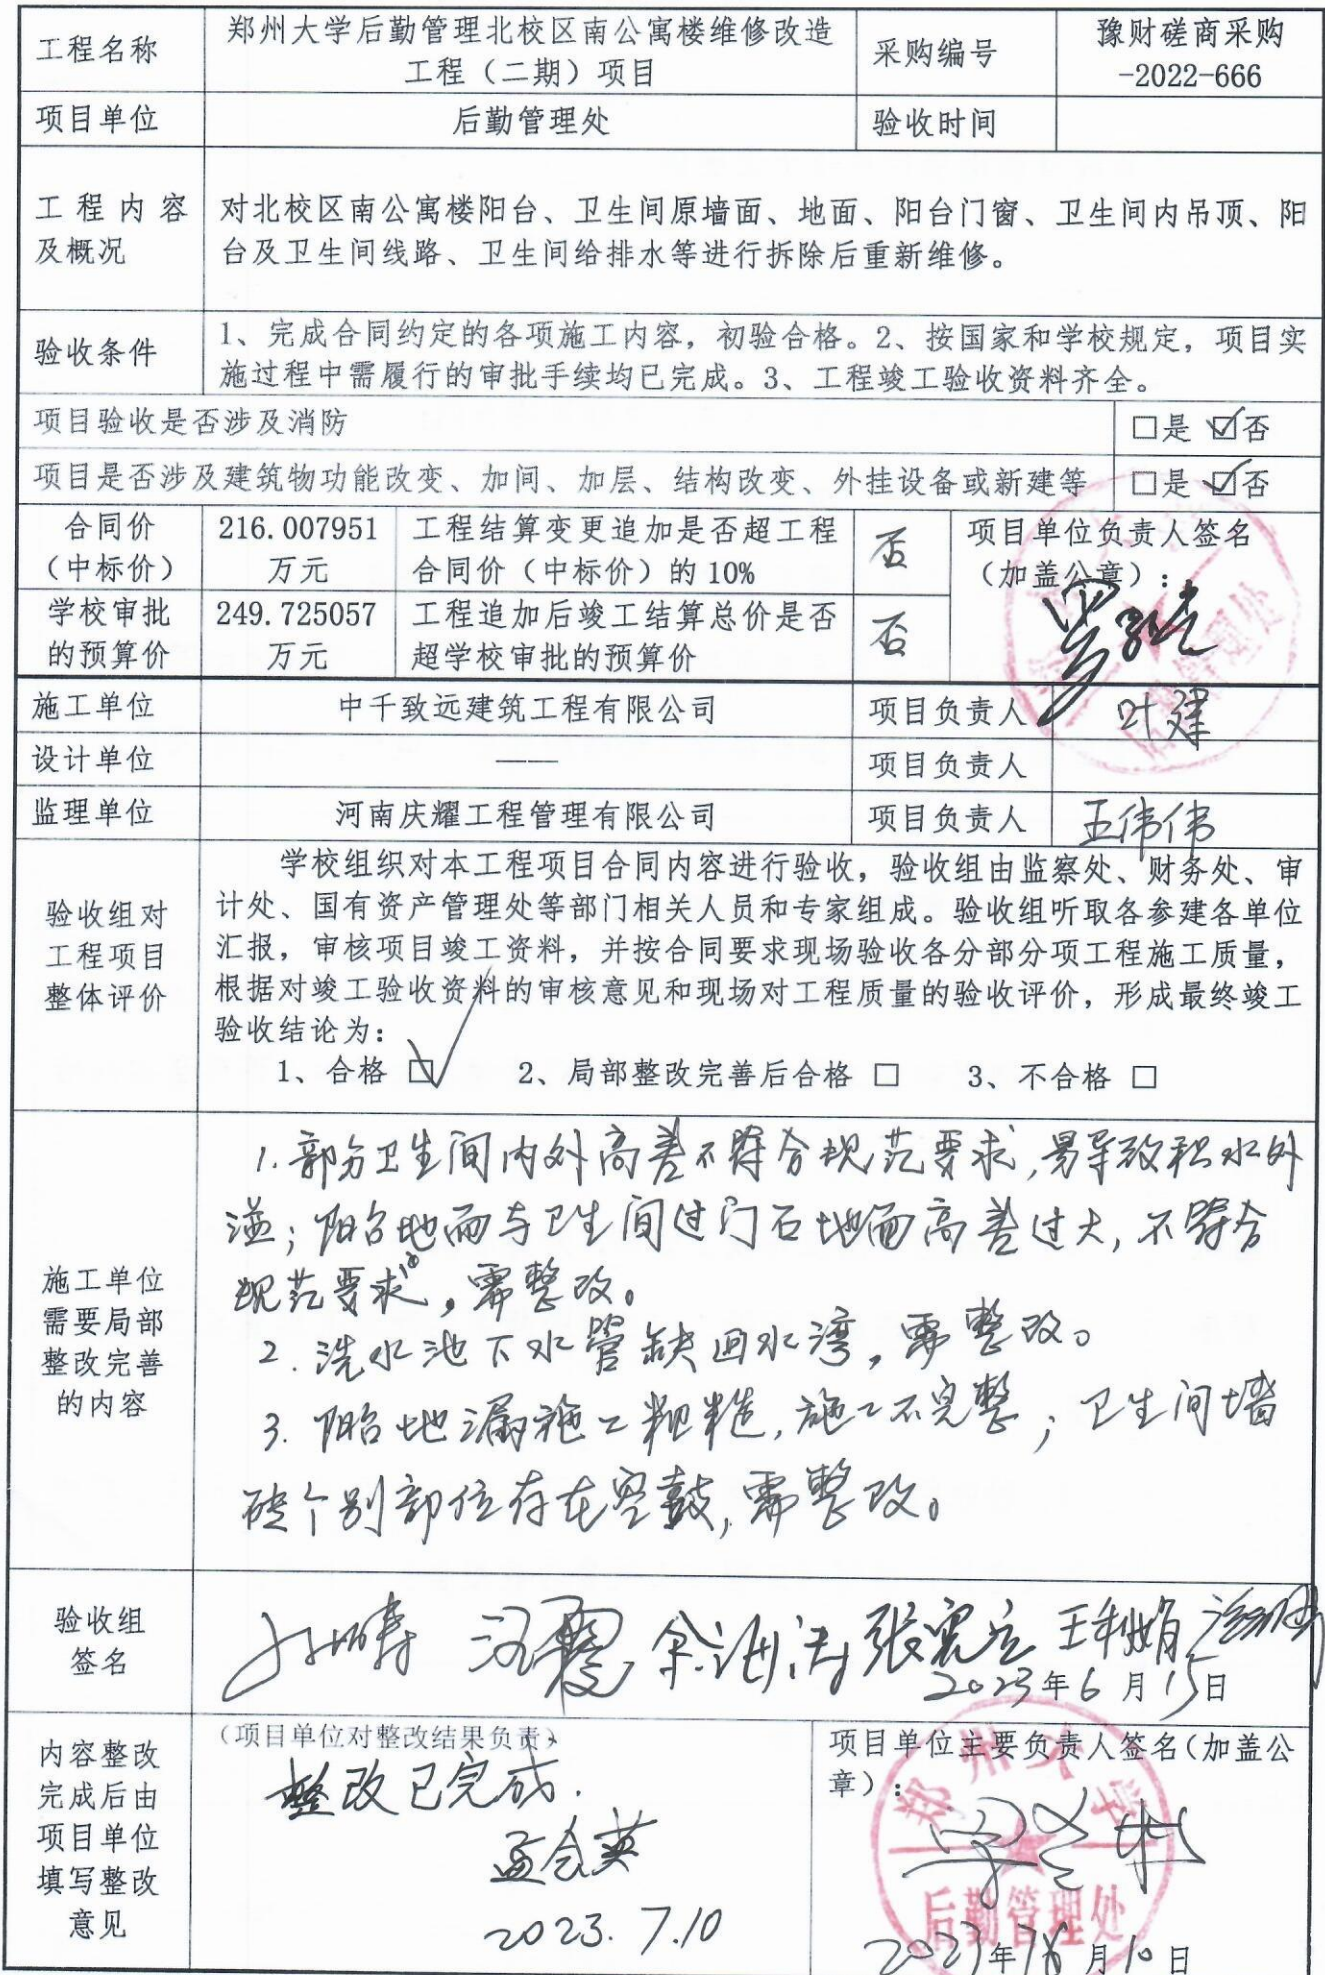 工程名称
郑州大学后勤管理北校区南公寓楼维修改造
工程（二期）项目
采购编号
豫财磋商采购
-2022-666
项目单位
后勤管理处
验收时间
工程内容
及概况
对北校区南公寓楼阳台、卫生间原墙面、地面、阳台门窗、卫生间内吊顶、阳
台及卫生间线路、卫生间给排水等进行拆除后重新维修。
验收条件
1、完成合同约定的各项施工内容，初验合格。2、按国家和学校规定，项目实
施过程中需履行的审批手续均已完成。3、工程竣工验收资料齐全。
项目验收是否涉及消防
□是 ☑否
项目是否涉及建筑物功能改变、加间、加层、结构改变、外挂设备或新建等
□是 ☑否
合同价
（中标价）
216.007951
万元
工程结算变更追加是否超工程
合同价（中标价）的 10%
否
项目单位负责人签名
（加盖公章）：
学校审批
的预算价
249.725057
万元
工程追加后竣工结算总价是否
超学校审批的预算价
否
施工单位
中千致远建筑工程有限公司
项目负责人
叶建
设计单位
——
项目负责人
监理单位
河南庆耀工程管理有限公司
项目负责人
王伟伟
验收组对
工程项目
整体评价
学校组织对本工程项目合同内容进行验收，验收组由监察处、财务处、审
计处、国有资产管理处等部门相关人员和专家组成。验收组听取各参建各单位
汇报，审核项目竣工资料，并按合同要求现场验收各分部分项工程施工质量，
根据对竣工验收资料的审核意见和现场对工程质量的验收评价，形成最终竣工
验收结论为：
1、合格 ☑ 2、局部整改完善后合格 □ 3、不合格 □
施工单位
需要局部
整改完善
的内容
1.部分卫生间内外高差不符合规范要求,易导致积水外
溢；阳台地面与卫生间过门石地面高差过大,不符合
规范要求，需整改。
2.洗水池下水管缺回水湾，需整改。
3.阳台地漏施工粗糙,施工不完整；卫生间墙
砖个别部位存在空鼓,需整改。
验收组
签名
张宪立 王利娟
2023年6月15日
内容整改
完成后由
项目单位
填写整改
意见
（项目单位对整改结果负责）
整改已完成.
孟会英
2023.7.10
项目单位主要负责人签名（加盖公
章）：
郑州大学
后勤管理处
2023年7月10日